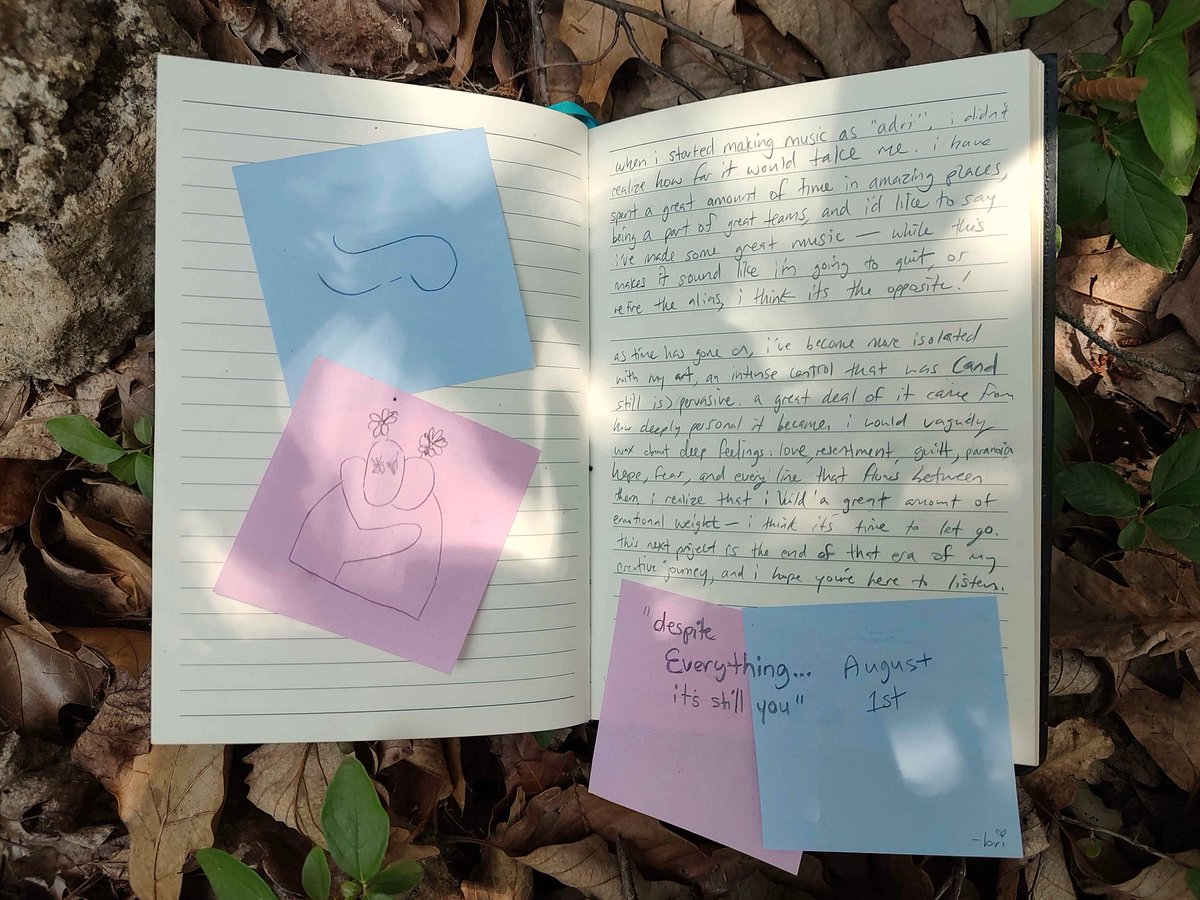 when i started making music as "adri", i didn't
realize how far it would take me. i have
spent a great amount of time in amazing places,
being a part of great teams, and i'd like to say
i've made some great music — while this
makes it sound like i'm going to quit, or
retire the alias, i think it's the opposite!
as time has gone on, i've become more isolated
with my art, an intense control that was (and
still is) pervasive. a great deal of it came from
how deeply personal it became. i would vaguely
wax about deep feelings. love, resentment, guilt, paranoia
hope, fear, and every line that flows between
them. i realize that i hold a great amount of
emotional weight — i think it's time to let go.
this next project is the end of that era of my
creative journey, and i hope you're here to listen.
"despite
Everything...
it's still you"
August
1st